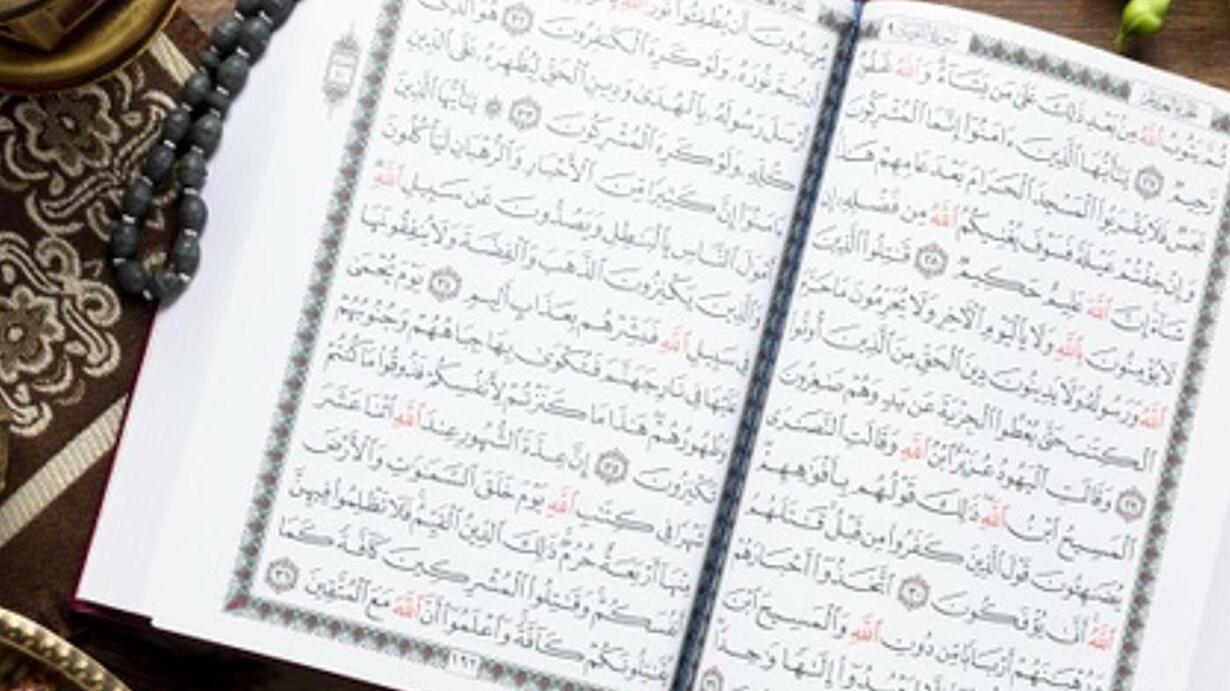 ثُمَّ يَتُوبُ ٱللَّهُ مِنۢ بَعْدِ ذَٰلِكَ عَلَىٰ مَن يَشَآءُ وَٱللَّهُ غَفُورٌ
رَّحِيمٌ ٢٧ يَٰٓأَيُّهَا ٱلَّذِينَ ءَامَنُوٓا۟ إِنَّمَا ٱلْمُشْرِكُونَ
نَجَسٌ فَلَا يَقْرَبُوا۟ ٱلْمَسْجِدَ ٱلْحَرَامَ بَعْدَ عَامِهِمْ هَٰذَا
وَإِنْ خِفْتُمْ عَيْلَةً فَسَوْفَ يُغْنِيكُمُ ٱللَّهُ مِن فَضْلِهِۦٓ إِن
شَآءَ إِنَّ ٱللَّهَ عَلِيمٌ حَكِيمٌ ٢٨ قَٰتِلُوا۟ ٱلَّذِينَ
لَا يُؤْمِنُونَ بِٱللَّهِ وَلَا بِٱلْيَوْمِ ٱلْءَاخِرِ وَلَا يُحَرِّمُونَ مَا حَرَّمَ
ٱللَّهُ وَرَسُولُهُۥ وَلَا يَدِينُونَ دِينَ ٱلْحَقِّ مِنَ ٱلَّذِينَ أُوتُوا۟
ٱلْكِتَٰبَ حَتَّىٰ يُعْطُوا۟ ٱلْجِزْيَةَ عَن يَدٍ وَهُمْ صَٰغِرُونَ
٢٩ وَقَالَتِ ٱلْيَهُودُ عُزَيْرٌ ٱبْنُ ٱللَّهِ وَقَالَتِ ٱلنَّصَٰرَى
ٱلْمَسِيحُ ٱبْنُ ٱللَّهِ ذَٰلِكَ قَوْلُهُم بِأَفْوَٰهِهِمْ
يُضَٰهِـُٔونَ قَوْلَ ٱلَّذِينَ كَفَرُوا۟ مِن قَبْلُ قَٰتَلَهُمُ
ٱللَّهُ أَنَّىٰ يُؤْفَكُونَ ٣٠ ٱتَّخَذُوٓا۟ أَحْبَارَهُمْ
وَرُهْبَٰنَهُمْ أَرْبَابًا مِّن دُونِ ٱللَّهِ وَٱلْمَسِيحَ ٱبْنَ
إِلَٰهًا وَٰحِدًا
يُرِيدُونَ أَن يُطْفِـُٔوا۟ نُورَ ٱللَّهِ
يُتِمَّ نُورَهُۥ وَلَوْ كَرِهَ ٱلْكَٰفِرُونَ ٣٢ هُوَ ٱلَّذِىٓ
أَرْسَلَ رَسُولَهُۥ بِٱلْهُدَىٰ وَدِينِ ٱلْحَقِّ لِيُظْهِرَهُۥ عَلَى ٱلدِّينِ
كُلِّهِۦ وَلَوْ كَرِهَ ٱلْمُشْرِكُونَ ٣٣ ۞ يَٰٓأَيُّهَا ٱلَّذِينَ
ءَامَنُوٓا۟ إِنَّ كَثِيرًا مِّنَ ٱلْأَحْبَارِ وَٱلرُّهْبَانِ لَيَأْكُلُونَ
أَمْوَٰلَ ٱلنَّاسِ بِٱلْبَٰطِلِ وَيَصُدُّونَ عَن سَبِيلِ ٱللَّهِ
وَٱلَّذِينَ يَكْنِزُونَ ٱلذَّهَبَ وَٱلْفِضَّةَ وَلَا يُنفِقُونَهَا
فِى سَبِيلِ ٱللَّهِ فَبَشِّرْهُم بِعَذَابٍ أَلِيمٍ ٣٤ يَوْمَ يُحْمَىٰ
عَلَيْهَا فِى نَارِ جَهَنَّمَ فَتُكْوَىٰ بِهَا جِبَاهُهُمْ وَجُنُوبُهُمْ
وَظُهُورُهُمْ هَٰذَا مَا كَنَزْتُمْ لِأَنفُسِكُمْ فَذُوقُوا۟ مَا كُنتُمْ
تَكْنِزُونَ ٣٥ إِنَّ عِدَّةَ ٱلشُّهُورِ عِندَ ٱللَّهِ ٱثْنَا عَشَرَ
شَهْرًا فِى كِتَٰبِ ٱللَّهِ يَوْمَ خَلَقَ ٱلسَّمَٰوَٰتِ وَٱلْأَرْضَ
مِنْهَآ أَرْبَعَةٌ حُرُمٌ ذَٰلِكَ ٱلدِّينُ ٱلْقَيِّمُ فَلَا تَظْلِمُوا۟ فِيهِنَّ
أَنفُسَكُمْ وَقَٰتِلُوا۟ ٱلْمُشْرِكِينَ كَآفَّةً كَمَا
يُقَٰتِلُونَكُمْ كَآفَّةً وَٱعْلَمُوٓا۟ أَنَّ ٱللَّهَ مَعَ ٱلْمُتَّقِينَ ٣٦
١٩٢